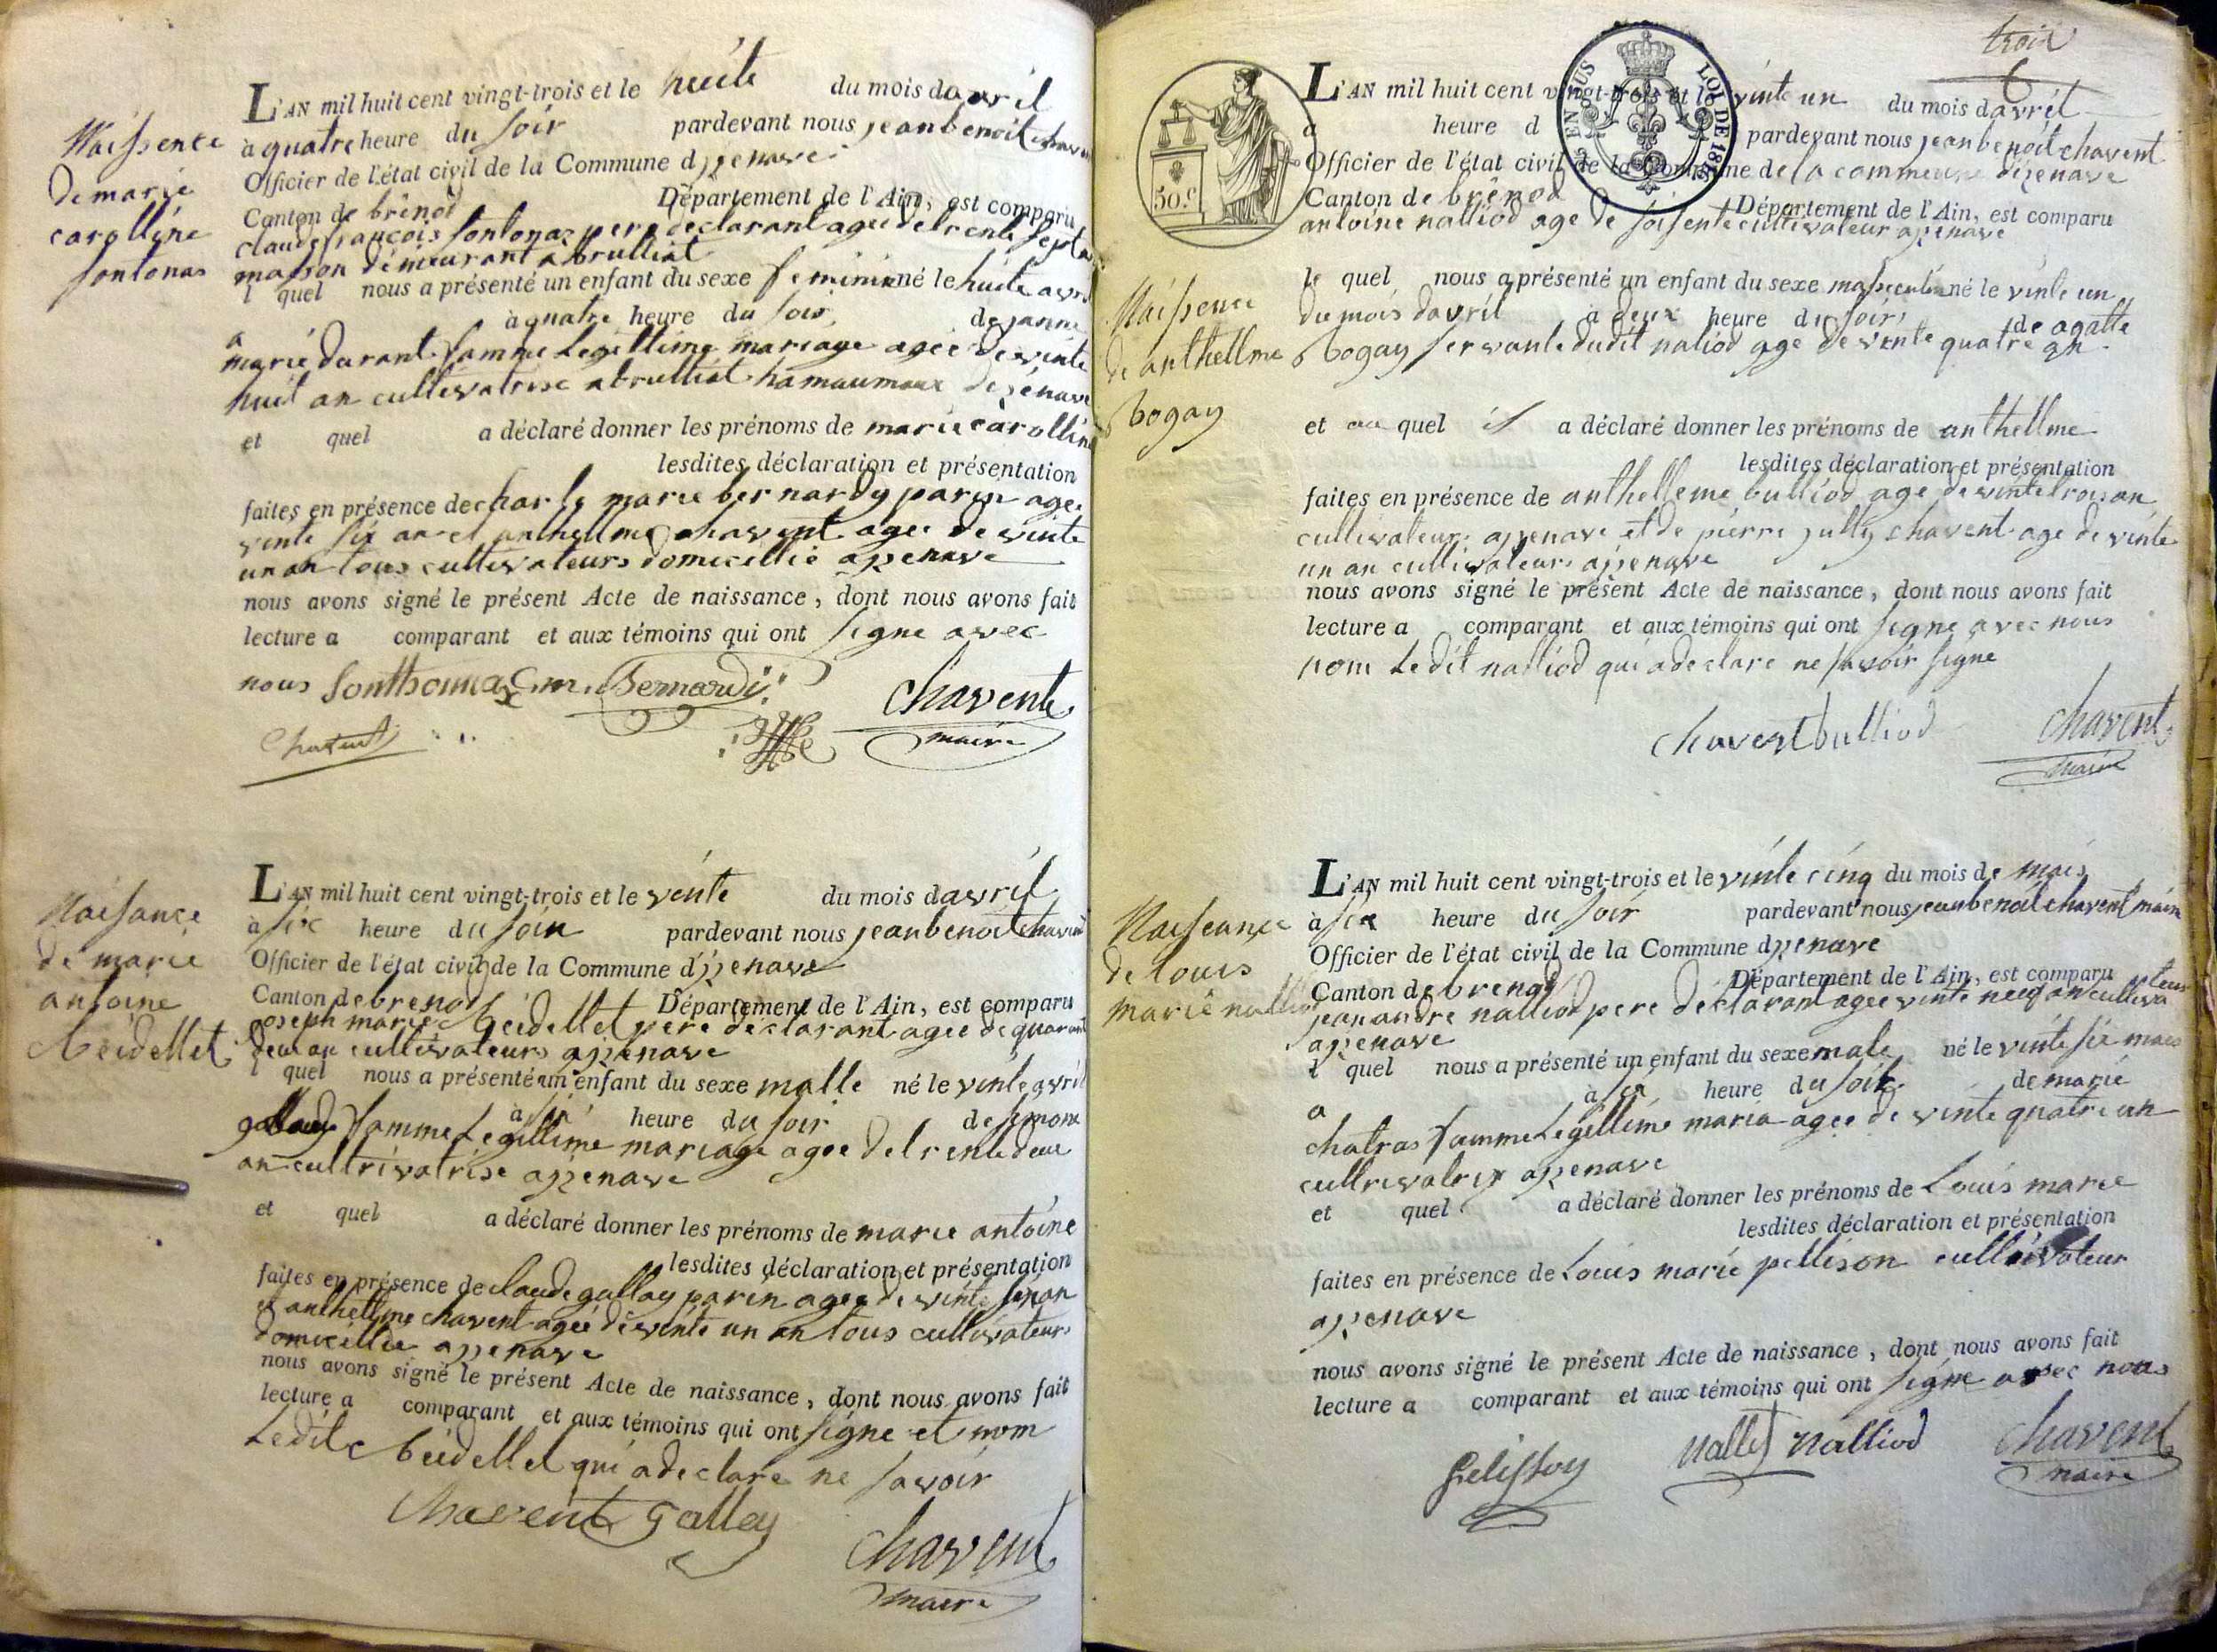 Naissence
de marie
carolline
sontonas
L'AN mil huit cent vingt-trois et le huite du mois davril
à quatre heure du soir pardevant nous jean benoit chavent
Officier de l'état civil de la Commune d izenave
Canton de brénod Département de l'Ain, est comparu
claude françois sontonaz pere declarant agee de trente sept an
masson demeurant a brulliat
l quel nous a présenté un enfant du sexe feminin né le huite avril
à quatre heure du soir de janne
a
marie durant famme Legittime mariage agée de vinte
huit an cultivatrise a brulliat hamaumaux dizenave
et quel a déclaré donner les prénoms de marie carolline
lesdites déclaration et présentation
faites en présence de charle marie bernardy parin agee
vinte six an et anthellme chavent agee de vinte
un an tous cultivateurs domicillié a izenave
nous avons signé le présent Acte de naissance, dont nous avons fait
lecture a comparant et aux témoins qui ont signe avec
nous Sonthonnax C. m. Bernardi Chavent
Chavent maire
Naisance
de marie
antoine
beidellet
L'AN mil huit cent vingt-trois et le vente du mois davril
à six heure du soir pardevant nous jean benoit chavent
Officier de l'état civil de la Commune d'izenave
Canton de brenod Département de l'Ain, est comparu
joseph marie beidellet pere declarant agee de quarant
deux an cultivateurs a izenave
l quel nous a présenté un enfant du sexe malle né le vinte avril
à six heure du soir de simone
gallay famme Legittime mariage agee de trente deux
an cultrivatrise a izenave
et quel a déclaré donner les prénoms de marie antoine
lesdites déclaration et présentation
faites en présence de claude gallay parin agee de vinte an
et anthellme chavent agée de vinte un an tous cultivateurs
domicillié a izenave
nous avons signé le présent Acte de naissance, dont nous avons fait
lecture a comparant et aux témoins qui ont signe et nom
Ledit beidellet qui a declare ne savoir
Chavent Galley
Chavent
maire
trois
6
50.c
EN SUS
LOI DE 1816
Naissence
de anthellme
bogay
L'AN mil huit cent vingt-trois et le vinte un du mois davril
a heure d pardevant nous jean benoit chavent
Officier de l'état civil de la Commune de la commeune dizenave
Canton de brénod Département de l'Ain, est comparu
antoine nalliod age de soisente cultivateur a izenave
le quel nous a présenté un enfant du sexe masceulin né le vinte un
du mois davril à deux heure du soir de agatte
bogay servante dudit naliod age de vente quatre an
et au quel il a déclaré donner les prénoms de anthellme
lesdites déclaration et présentation
faites en présence de anthelleme bulliod age de vinte trois an
cultivateurs a izenave et de pierre jully chavent age de vinte
un an cultivateurs a izenave
nous avons signé le présent Acte de naissance, dont nous avons fait
lecture a comparant et aux témoins qui ont signe avec nous
nom Ledit nalliod qui a declare ne savoir signe
Chavent bulliod Chavent
maire
Naiseance
de louis
marie nalliod
L'AN mil huit cent vingt-trois et le vinte cinq du mois de mais
à six heure du soir pardevant nous jean benoit chavent maire
Officier de l'état civil de la Commune dizenave
Canton de brenod Département de l'Ain, est comparu
jean andre nalliod pere déclarant agee vinte neuf an cultivateur
a izenave
l quel nous a présenté un enfant du sexe male né le vinte six mais
à six heure du soir de marie
a
chatras famme Legittime maria agee de vinte quatre an
cultrivatrix a izenave
et quel a déclaré donner les prénoms de Louis marie
lesdites déclaration et présentation
faites en présence de Louis marie pellison cultivateur
a izenave
nous avons signé le présent Acte de naissance, dont nous avons fait
lecture a comparant et aux témoins qui ont signe avec nous
Pelisson nallet nalliod Chavent
maire